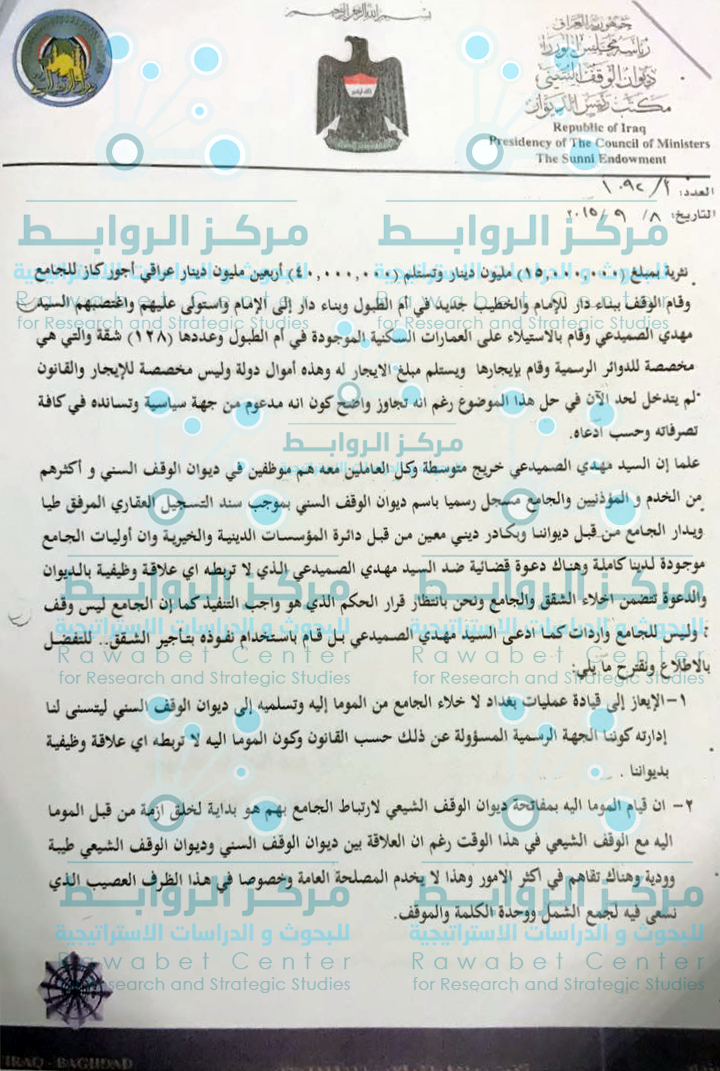 بسم الله الرحمن الرحيم
جمهورية العراق
رئاسة مجلس الوزراء
ديوان الوقف السني
مكتب رئيس الديوان
Republic of Iraq
Presidency of The Council of Ministers
The Sunni Endowment
العدد: ٢/ ١٠٩٢
التاريخ: ٨ / ٩ / ٢٠١٥
نثرية بمبلغ (١٥,٠٠٠,٠٠٠) مليون دينار وتستلم (٤٠,٠٠٠,٠٠٠) أربعين مليون دينار عراقي أجور كاز للجامع
وقام الوقف ببناء دار للإمام والخطيب جديد في أم الطبول وبناء دار إلى الإمام واستولى عليهم واغتصبهم السيد
مهدي الصميدعي وقام بالاستيلاء على العمارات السكنية الموجودة في أم الطبول وعددها (١٢٨) شقة والتي هي
مخصصة للدوائر الرسمية وقام بإيجارها ويستلم مبلغ الايجار له وهذه أموال دولة وليس مخصصة للإيجار والقانون
لم يتدخل لحد الآن في حل هذا الموضوع رغم انه تجاوز واضح كون انه مدعوم من جهة سياسية وتسانده في كافة
تصرفاته وحسب ادعاه.
علما إن السيد مهدي الصميدعي خريج متوسطة وكل العاملين معه هم موظفين في ديوان الوقف السني و أكثرهم
من الخدم و المؤذنيين والجامع مسجل رسميا باسم ديوان الوقف السني بموجب سند التسجيل العقاري المرفق طيا
ويدار الجامع من قبل ديواننا وبكادر ديني معين من قبل دائرة المؤسسات الدينية والخيرية وان أوليات الجامع
موجودة لدينا كاملة وهناك دعوة قضائية ضد السيد مهدي الصميدعي الذي لا تربطه اي علاقة وظيفية بالديوان
والدعوة تتضمن اخلاء الشقق والجامع ونحن بانتظار قرار الحكم الذي هو واجب التنفيذ كما إن الجامع ليس وقف
وليس للجامع واردات كما ادعى السيد مهدي الصميدعي بل قام باستخدام نفوذه بتأجير الشقق.. للتفضل
بالاطلاع ونقترح ما يلي:
١- الإيعاز إلى قيادة عمليات بغداد لا خلاء الجامع من الموما إليه وتسلميه إلى ديوان الوقف السني ليتسنى لنا
إدارته كوننا الجهة الرسمية المسؤولة عن ذلك حسب القانون وكون الموما اليه لا تربطه اي علاقة وظيفية
بديواننا .
٢- ان قيام الموما اليه بمفاتحة ديوان الوقف الشيعي لارتباط الجامع بهم هو بداية لخلق ازمة من قبل الموما
اليه مع الوقف الشيعي في هذا الوقت رغم ان العلاقة بين ديوان الوقف السني وديوان الوقف الشيعي طيبة
وودية وهناك تفاهم في اكثر الامور وهذا لا يخدم المصلحة العامة وخصوصا في هذا الظرف العصيب الذي
نسعى فيه لجمع الشمل ووحدة الكلمة والموقف.
مركز الروابط
للبحوث و الدراسات الاستراتيجية
Rawabet Center
for Research and Strategic Studies
IRAQ - BAGHDAD